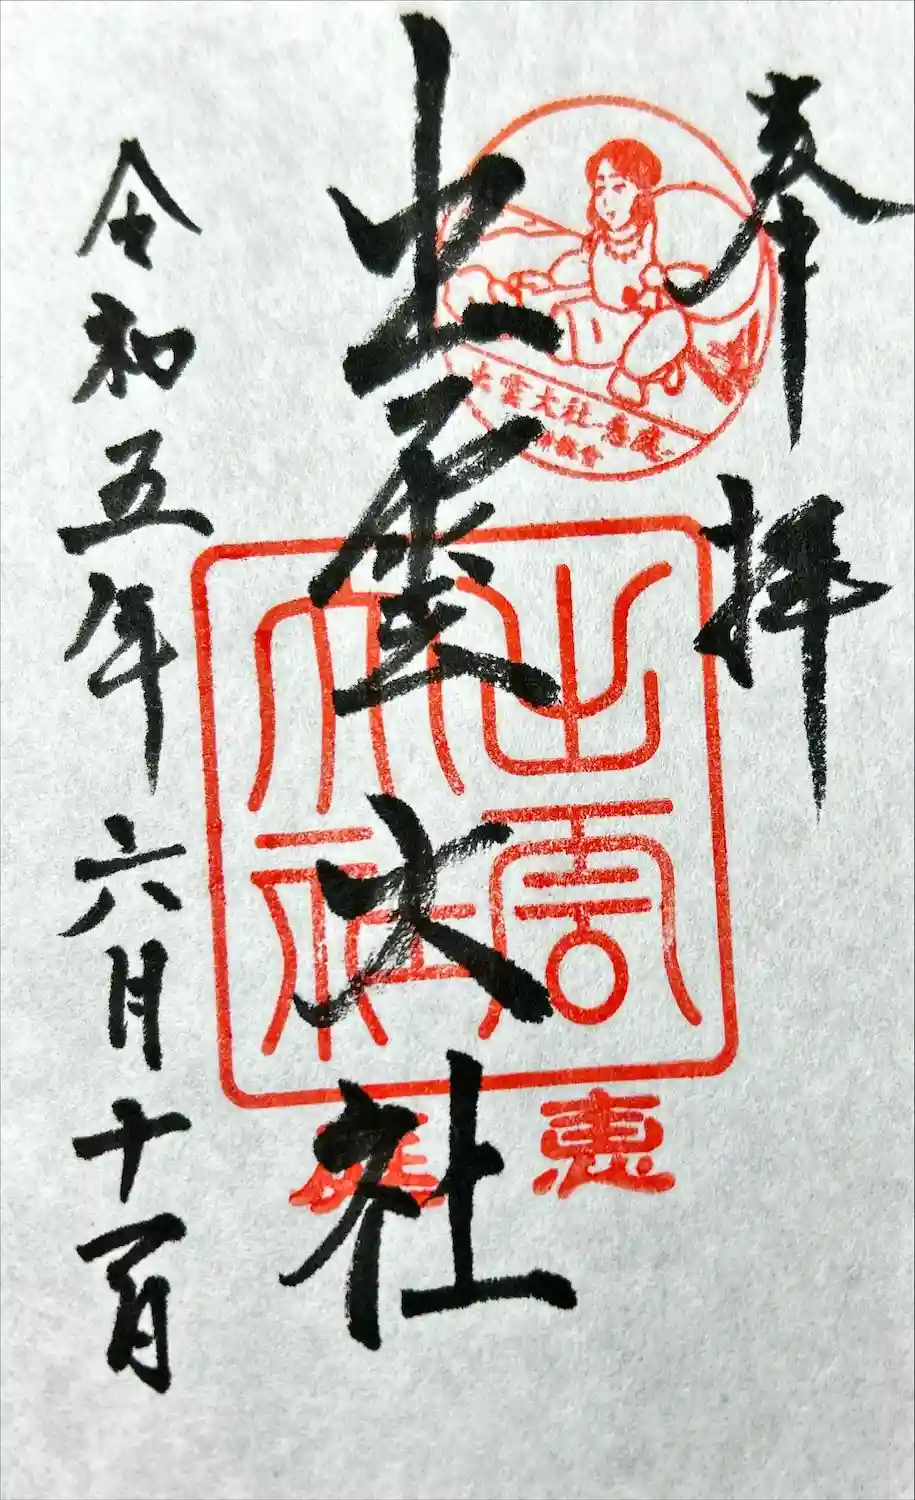 奉拝
出雲大社
出雲大社
出雲大社
恵
令和五年六月十一日